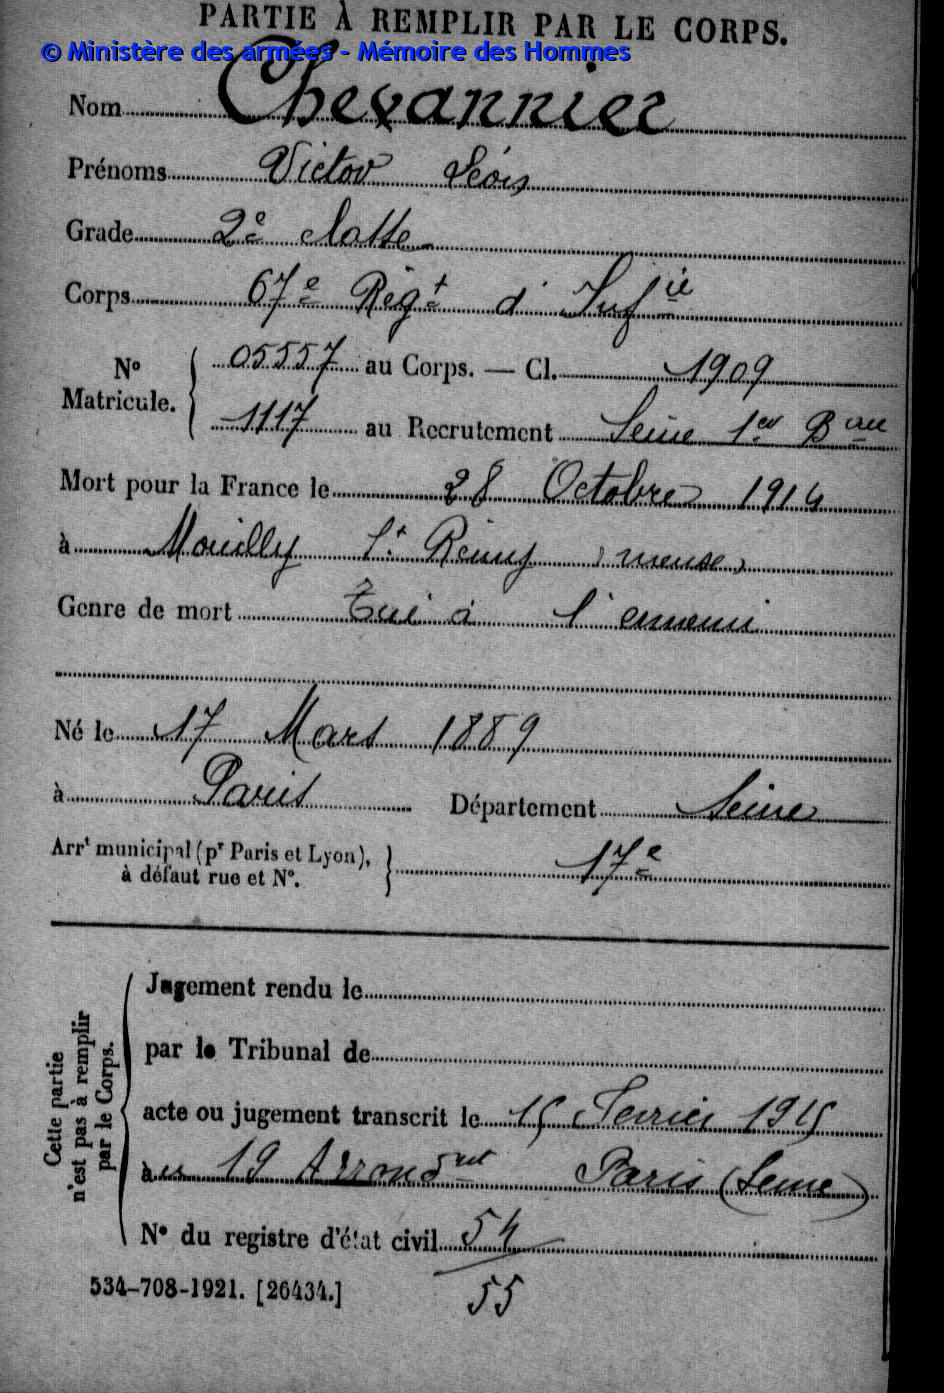 PARTIE À REMPLIR PAR LE CORPS.
© Ministère des armées - Mémoire des Hommes
Nom Chevannier
Prénoms Victor Léon
Grade 2e classe
Corps 67e Régt d'Infie
No Matricule. { 05557 au Corps. — Cl. 1909
1117 au Recrutement Seine 1er Bau
Mort pour la France le 28 Octobre 1914
à Mouilly St Remy (meuse)
Genre de mort Tué à l'ennemi
Né le 17 Mars 1889
à Paris Département Seine
Arrt municipal (pr Paris et Lyon), à défaut rue et No. } 17e
Cette partie n'est pas à remplir par le Corps.
Jugement rendu le
par le Tribunal de
acte ou jugement transcrit le 15 Février 1915
à 19 Arrondmt Paris (Seine)
No du registre d'état civil 54
534-708-1921. [26434.] 55